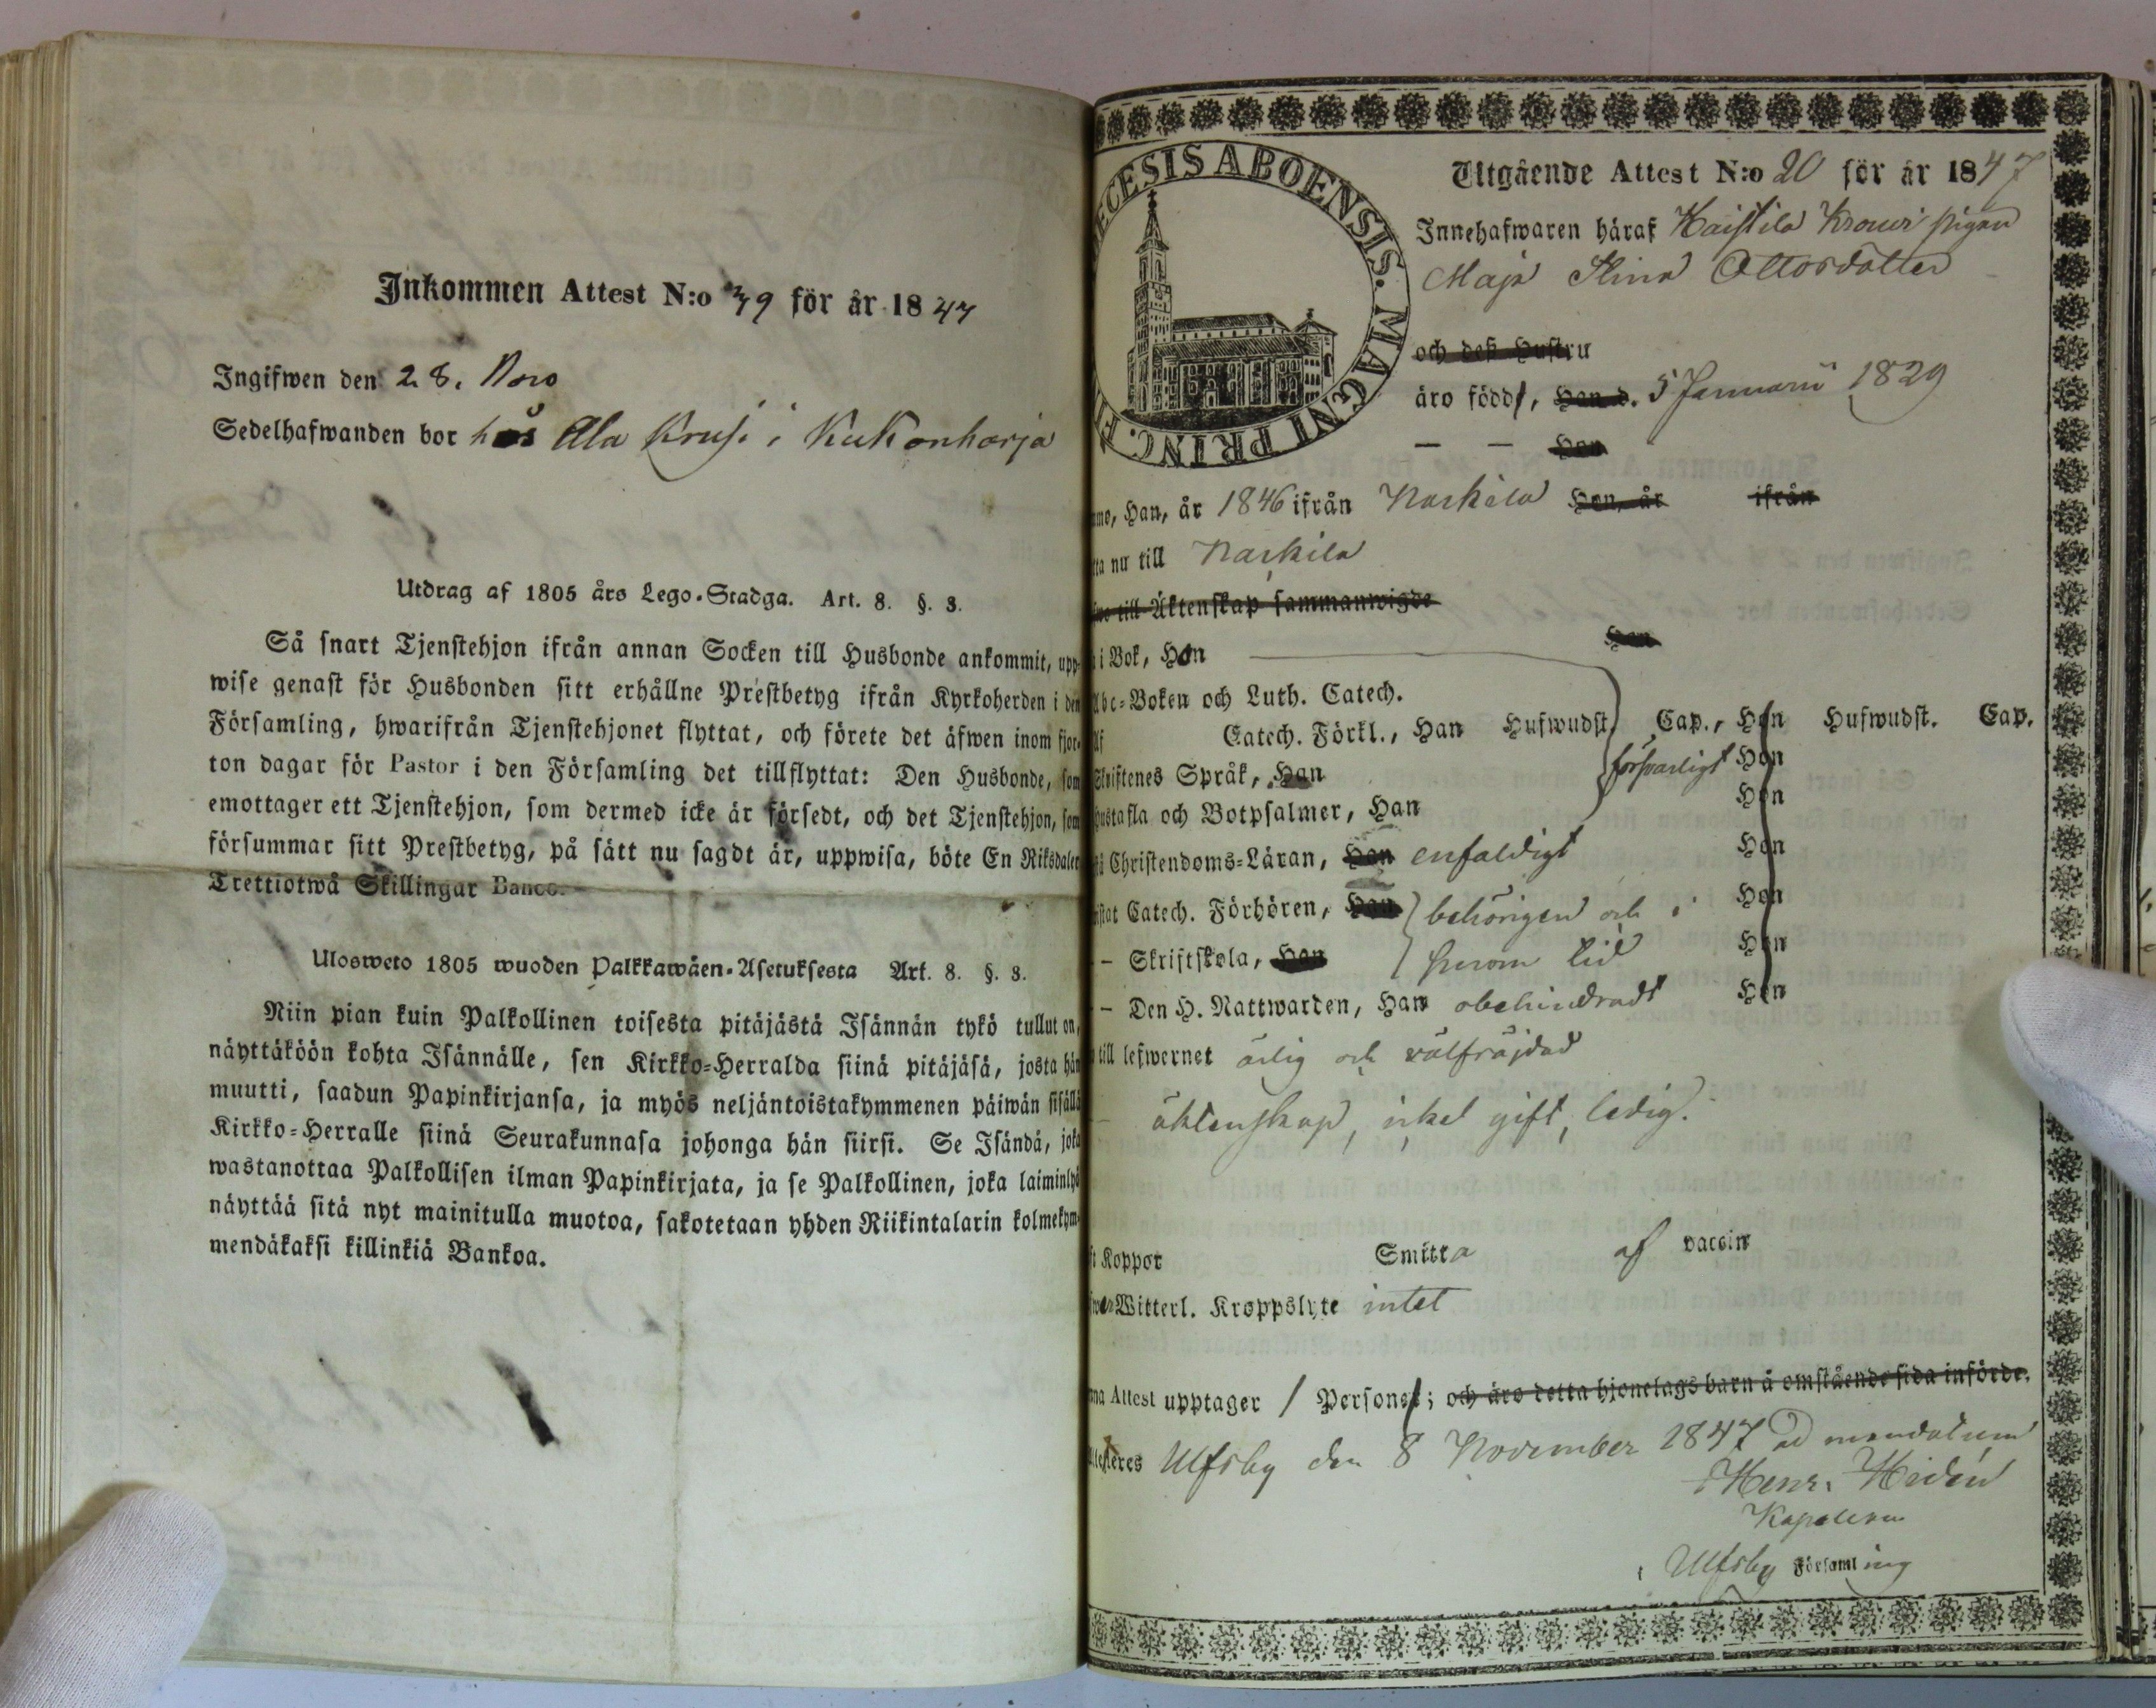 Inkommen Attest N:o 49 för år 1847
Ingifwen den 28. Nov
Sedelhafwanden bor hos Ala Krusi i Kukonharja
Utdrag af 1805 års Lego-Stadga. Art. 8. §. 3.
Så snart Tjenstehjon ifrån annan Socken till Husbonde ankommit, upp-
wise genast för Husbonden sitt erhållne Prestbetyg ifrån Kyrkoherden i den
Församling, hwarifrån Tjenstehjonet flyttat, och förete det äfwen inom fjor-
ton dagar för Pastor i den Församling det tillflyttat: Den Husbonde, som
emottager ett Tjenstehjon, som dermed icke är försedt, och det Tjenstehjon, som
försummar sitt Prestbetyg, på sätt nu sagdt är, uppwisa, böte En Riksdaler
Trettiotwå Skillingar Banco.
Ulosweto 1805 wuoden Palkkawäen-Asetuksesta Art. 8. §. 3.
Niin pian kuin Palkollinen toisesta pitäjästä Isännän tykö tullut on,
näyttäköön kohta Isännälle, sen Kirkko-Herralda siinä pitäjäsä, josta hän
muutti, saadun Papinkirjansa, ja myös neljäntoistakymmenen päiwän sisällä
Kirkko-Herralle siinä Seurakunnasa johonga hän siirsi. Se Isändä, joka
wastanottaa Palkollisen ilman Papinkirjata, ja se Palkollinen, joka laiminlyö
näyttää sitä nyt mainitulla muotoa, sakotetaan yhden Riikintalarin kolmekym-
mendäkaksi killinkiä Bankoa.
ECESIS ABOENSIS. MAGNI PRINC. F
Utgående Attest N:o 20 för år 1847
Innehafwaren häraf Kaistila Krouvi pigan
Maja Stina Ottosdotter
och deß Hustru
äro född, Han d. 5 Januarii 1829
— — Hon
Han, år 1846 ifrån Naskila Hon, år ifrån
nu till Naskila
till Äktenskap sammanwigde
i Bok, Hon Hon
Abc-Boken och Luth. Catech.
Catech. Förkl., Han Hufwudst. Cap., Hon Hufwudst. Cap.
Skriftenes Språk, Han försvarligt Hon
Hustafla och Botpsalmer, Han Hon
Christendoms-Läran, Han enfaldigt Hon
Catech. Förhören, Han behörigen och i Hon
— Skriftskola, Han Hon
— Den H. Nattwarden, Han obehindradt Hon
till lefwernet ärlig och välfräjdad
äktenskap, icke gift, ledig.
Koppor Smitta af vaccin
Witterl. Kroppslyte intet
Attest upptager 1 Person; och äro detta hjonelags barn å omstående sida införde.
Ulfsby den 8 November 1847 ad mandatum
Henr. Hidén
Kapellan
i Ulfsby Församling